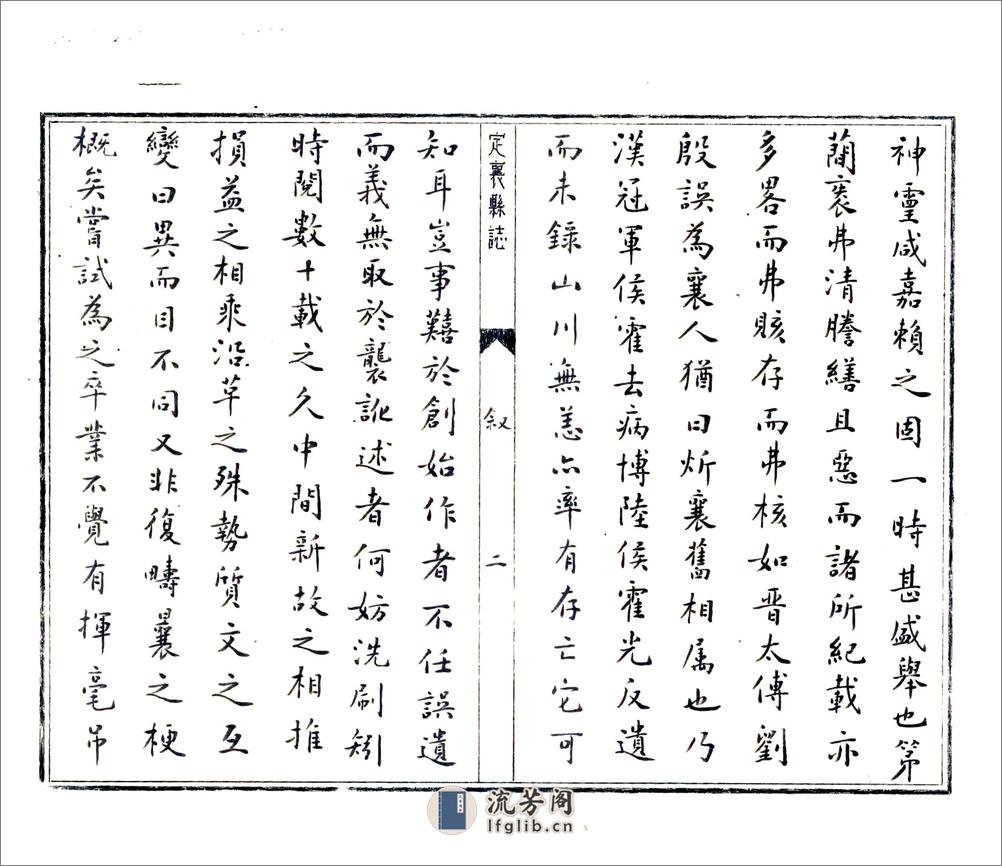 神靈咸嘉賴之固一時甚盛舉也第
蕑袠弗清謄繕且惡而諸所紀載亦
多畧而弗賅存而弗核如晋太傅劉
殷誤為襄人猶曰炘襄舊相属也乃
漢冠軍侯霍去病博陸侯霍光反遺
而未錄山川無恙亦率有存亡它可
定襄縣誌
叙
二
知耳豈事囏於創始作者不任誤遺
而義無取於襲訛述者何妨洗刷矧
時閱數十載之久中間新故之相推
損益之相乘沿革之殊勢質文之互
變日異而目不同又非復疇曩之梗
概矣嘗試為之卒業不覺有揮毫吊
流芳阁
lfglib.cn